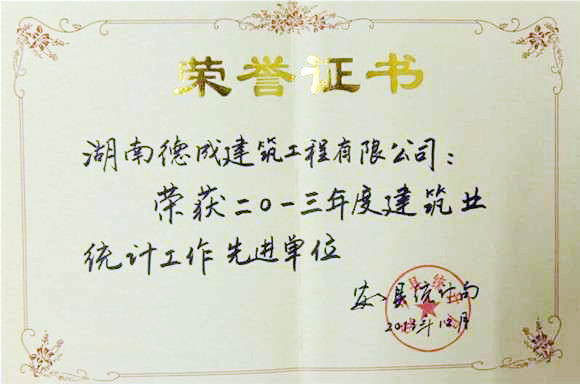 荣誉证书
湖南德成建筑工程有限公司：
荣获二〇一三年度建筑业
统计工作先进单位
县统计局
2013年12月